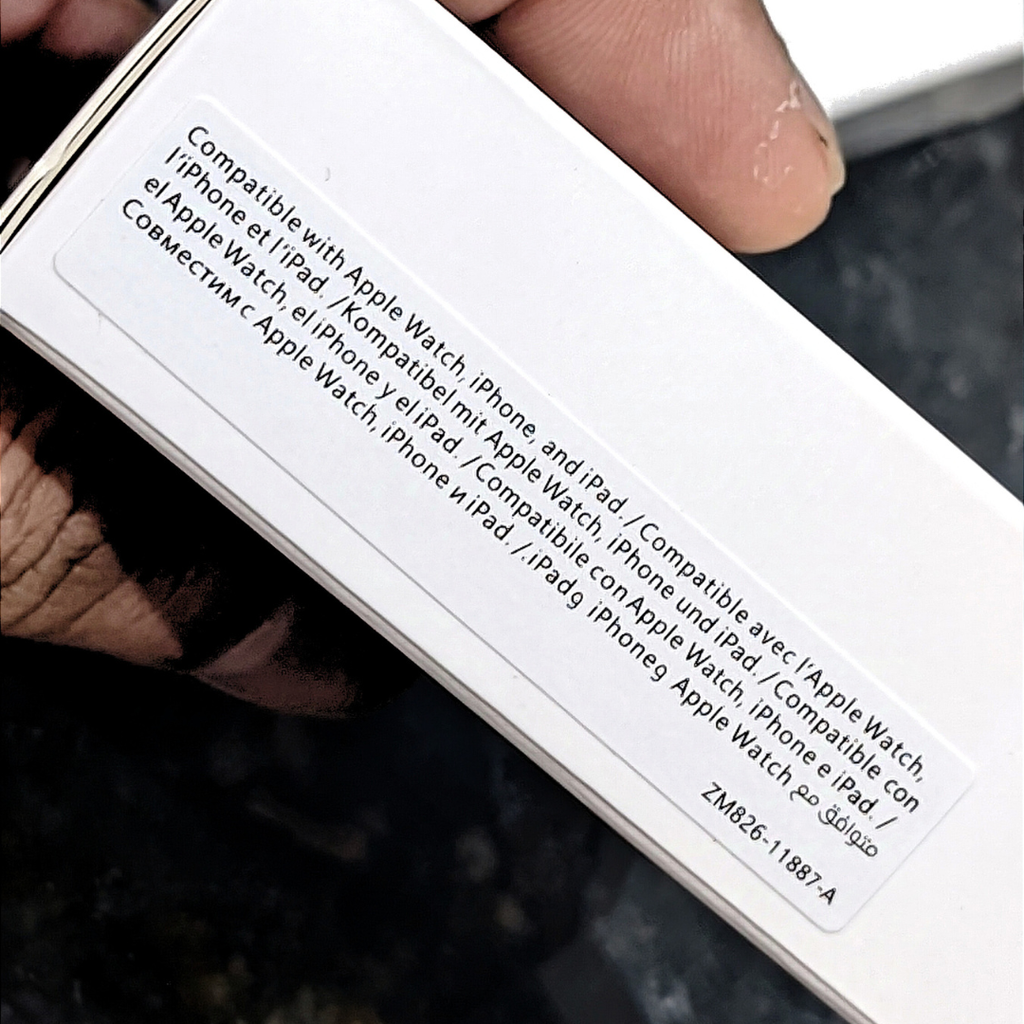 Compatible with Apple Watch, iPhone, and iPad. /Compatible avec l'Apple Watch,
l'iPhone et l'iPad. /Kompatibel mit Apple Watch, iPhone und iPad. /Compatible con
el Apple Watch, el iPhone y el iPad. /Compatibile con Apple Watch, iPhone e iPad. /
Совместим с Apple Watch, iPhone и iPad. /.iPadو iPhoneو Apple Watch متوافق مع
ZM826-11887-A